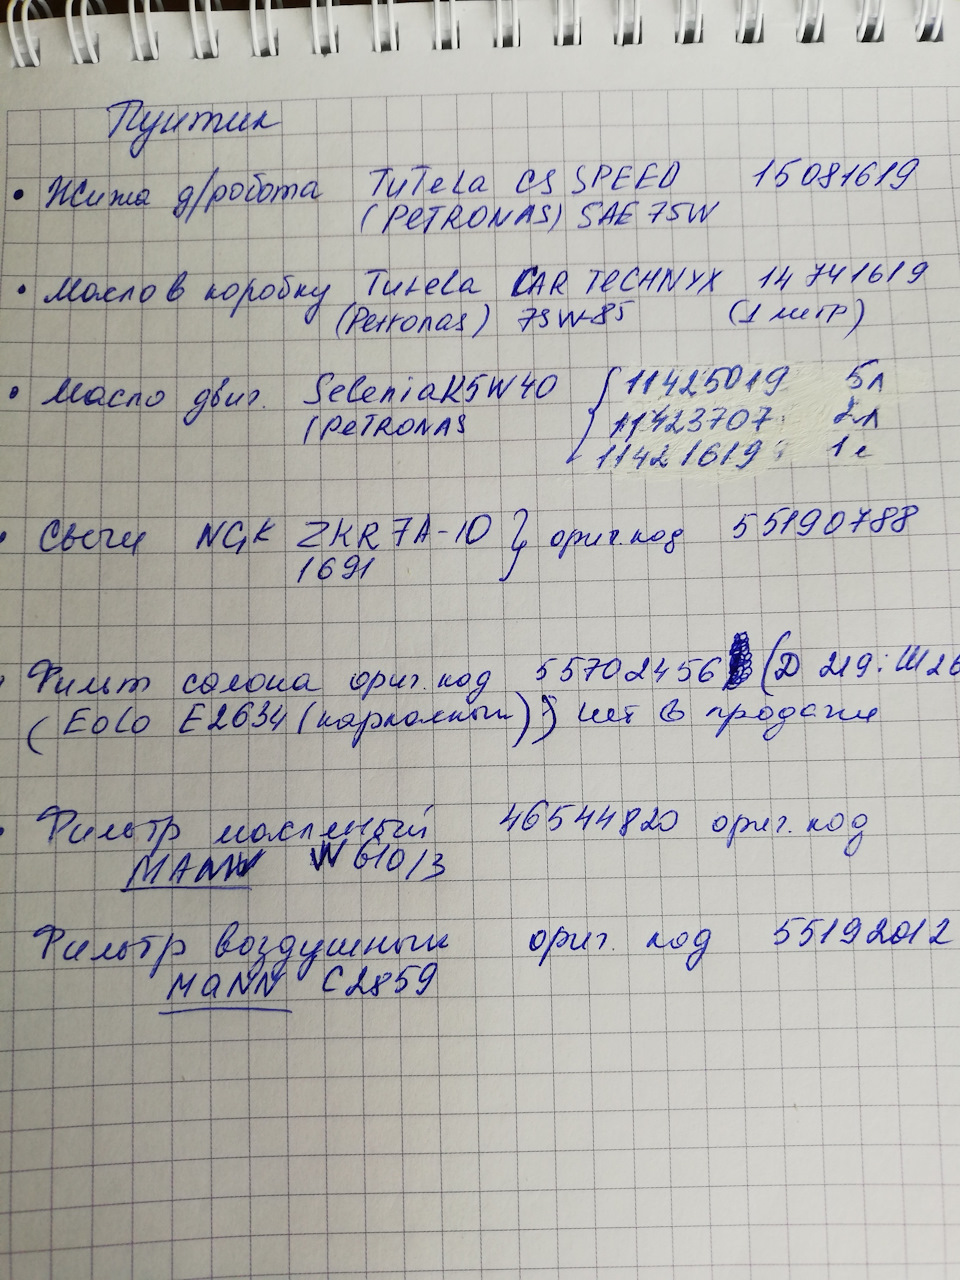 Пунтик
• Жижа д/робота TuTeLa CS SPEED 15081619
(PETRONAS) SAE 75W
• Масло в коробку Tutela CAR TECHNYX 14741619
(Petronas) 75W-85 (1 литр)
• Масло двиг. Selenia K 5W40 { 11425019 5л
(PETRONAS 11423707 2л
11421619 1л
• Свечи NGK ZKR 7A-10 } ориг. код 55190788
1691
Фильт салона ориг. код 55702456 (Д 219: Ш 26
(EOLO E2634 (каркасный)) нет в продаже
Фильтр масленый 46544820 ориг. код
MANN W610/3
Фильтр воздушный ориг. код 55192012
MANN C2859